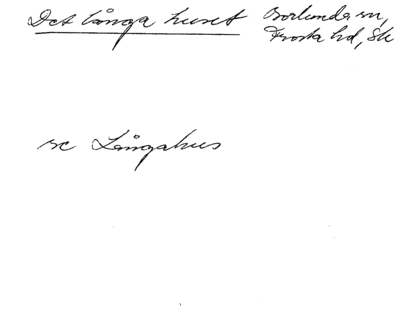 Det långa huset
Borlunda sn,
Frosta hd, Sk
se Långahus